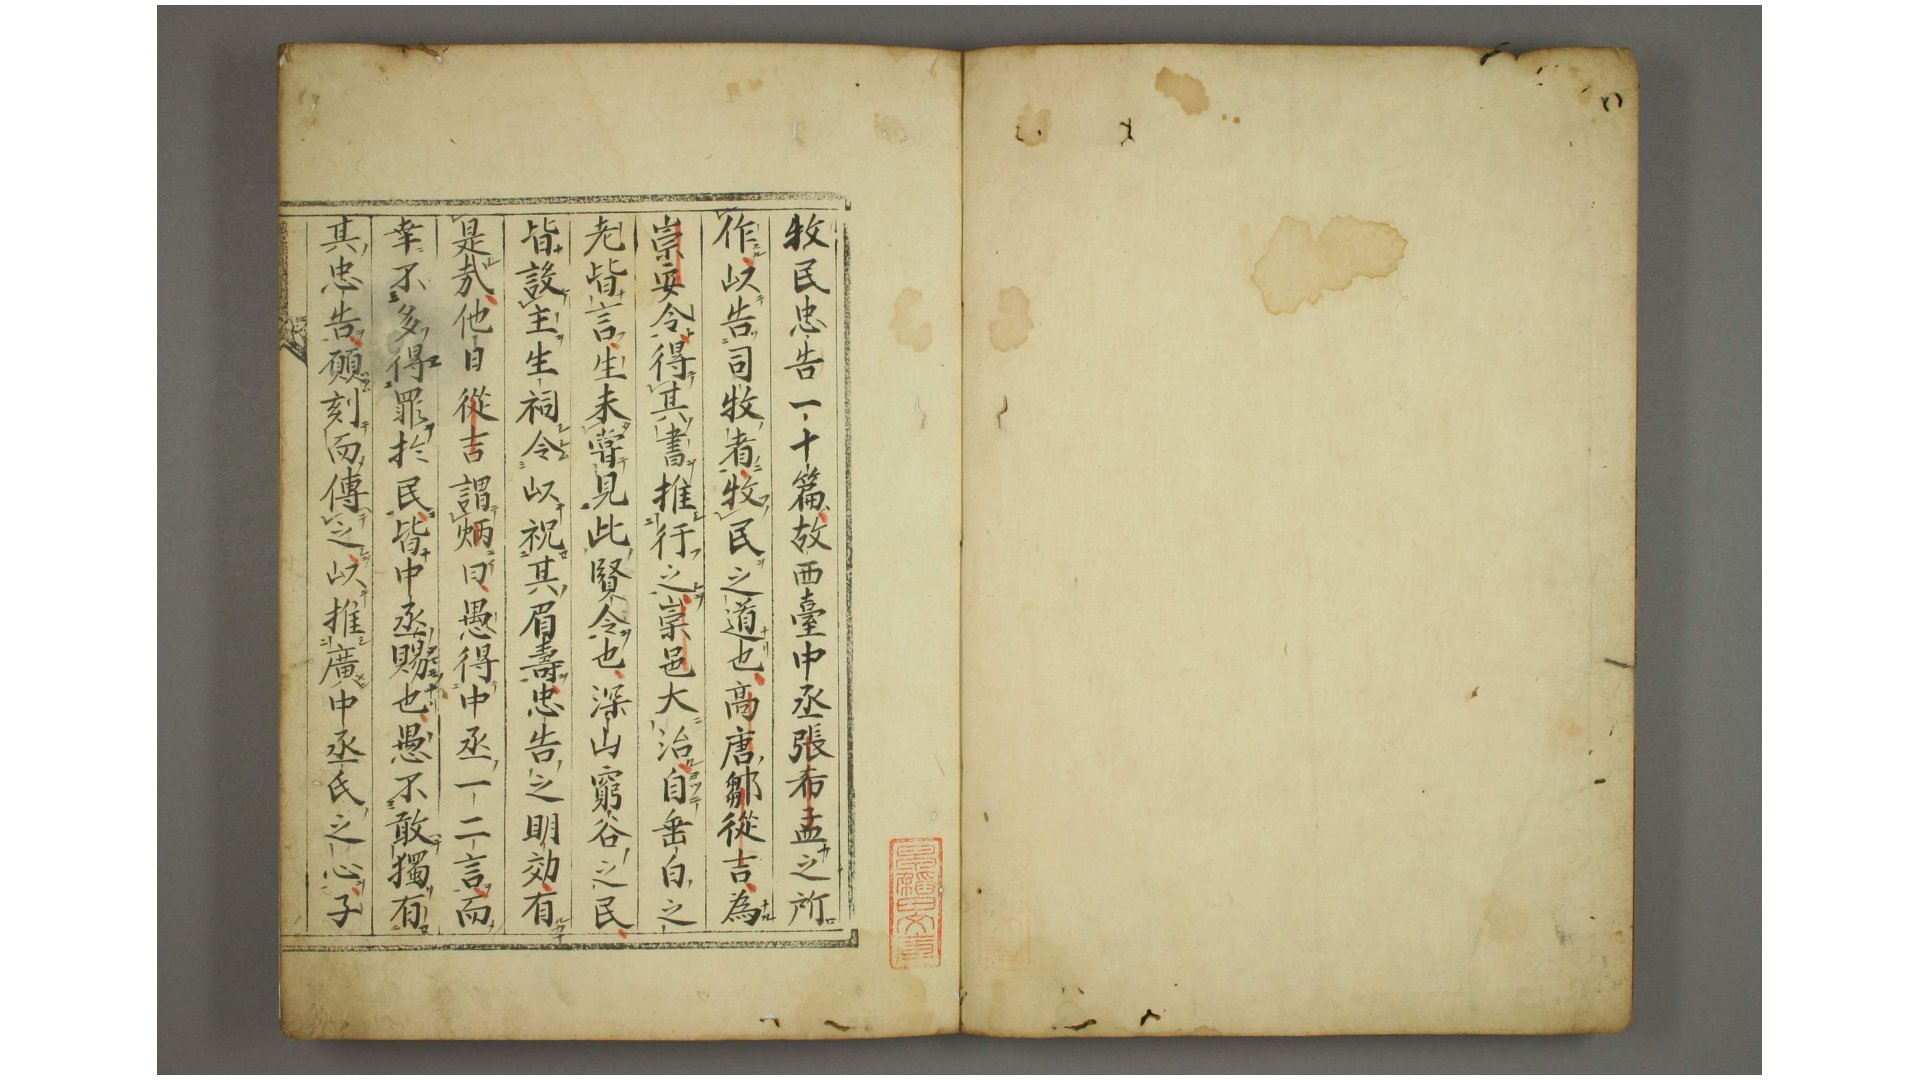 牧民忠告一十篇故西臺中丞張布孟之所
作以告司牧者牧民之道也高唐鄒從吉為
崇安令得其書推行之崇邑大治自垂白之
老皆言生未嘗見此賢令也深山窮谷之民
皆設主生祠令以祝其眉壽忠告之明効有
是哉他日從吉謂炳曰愚得中丞一二言而
幸不多得罪於民皆中丞賜也愚不敢獨有
其忠告願刻而傳之以推廣中丞氏之心子